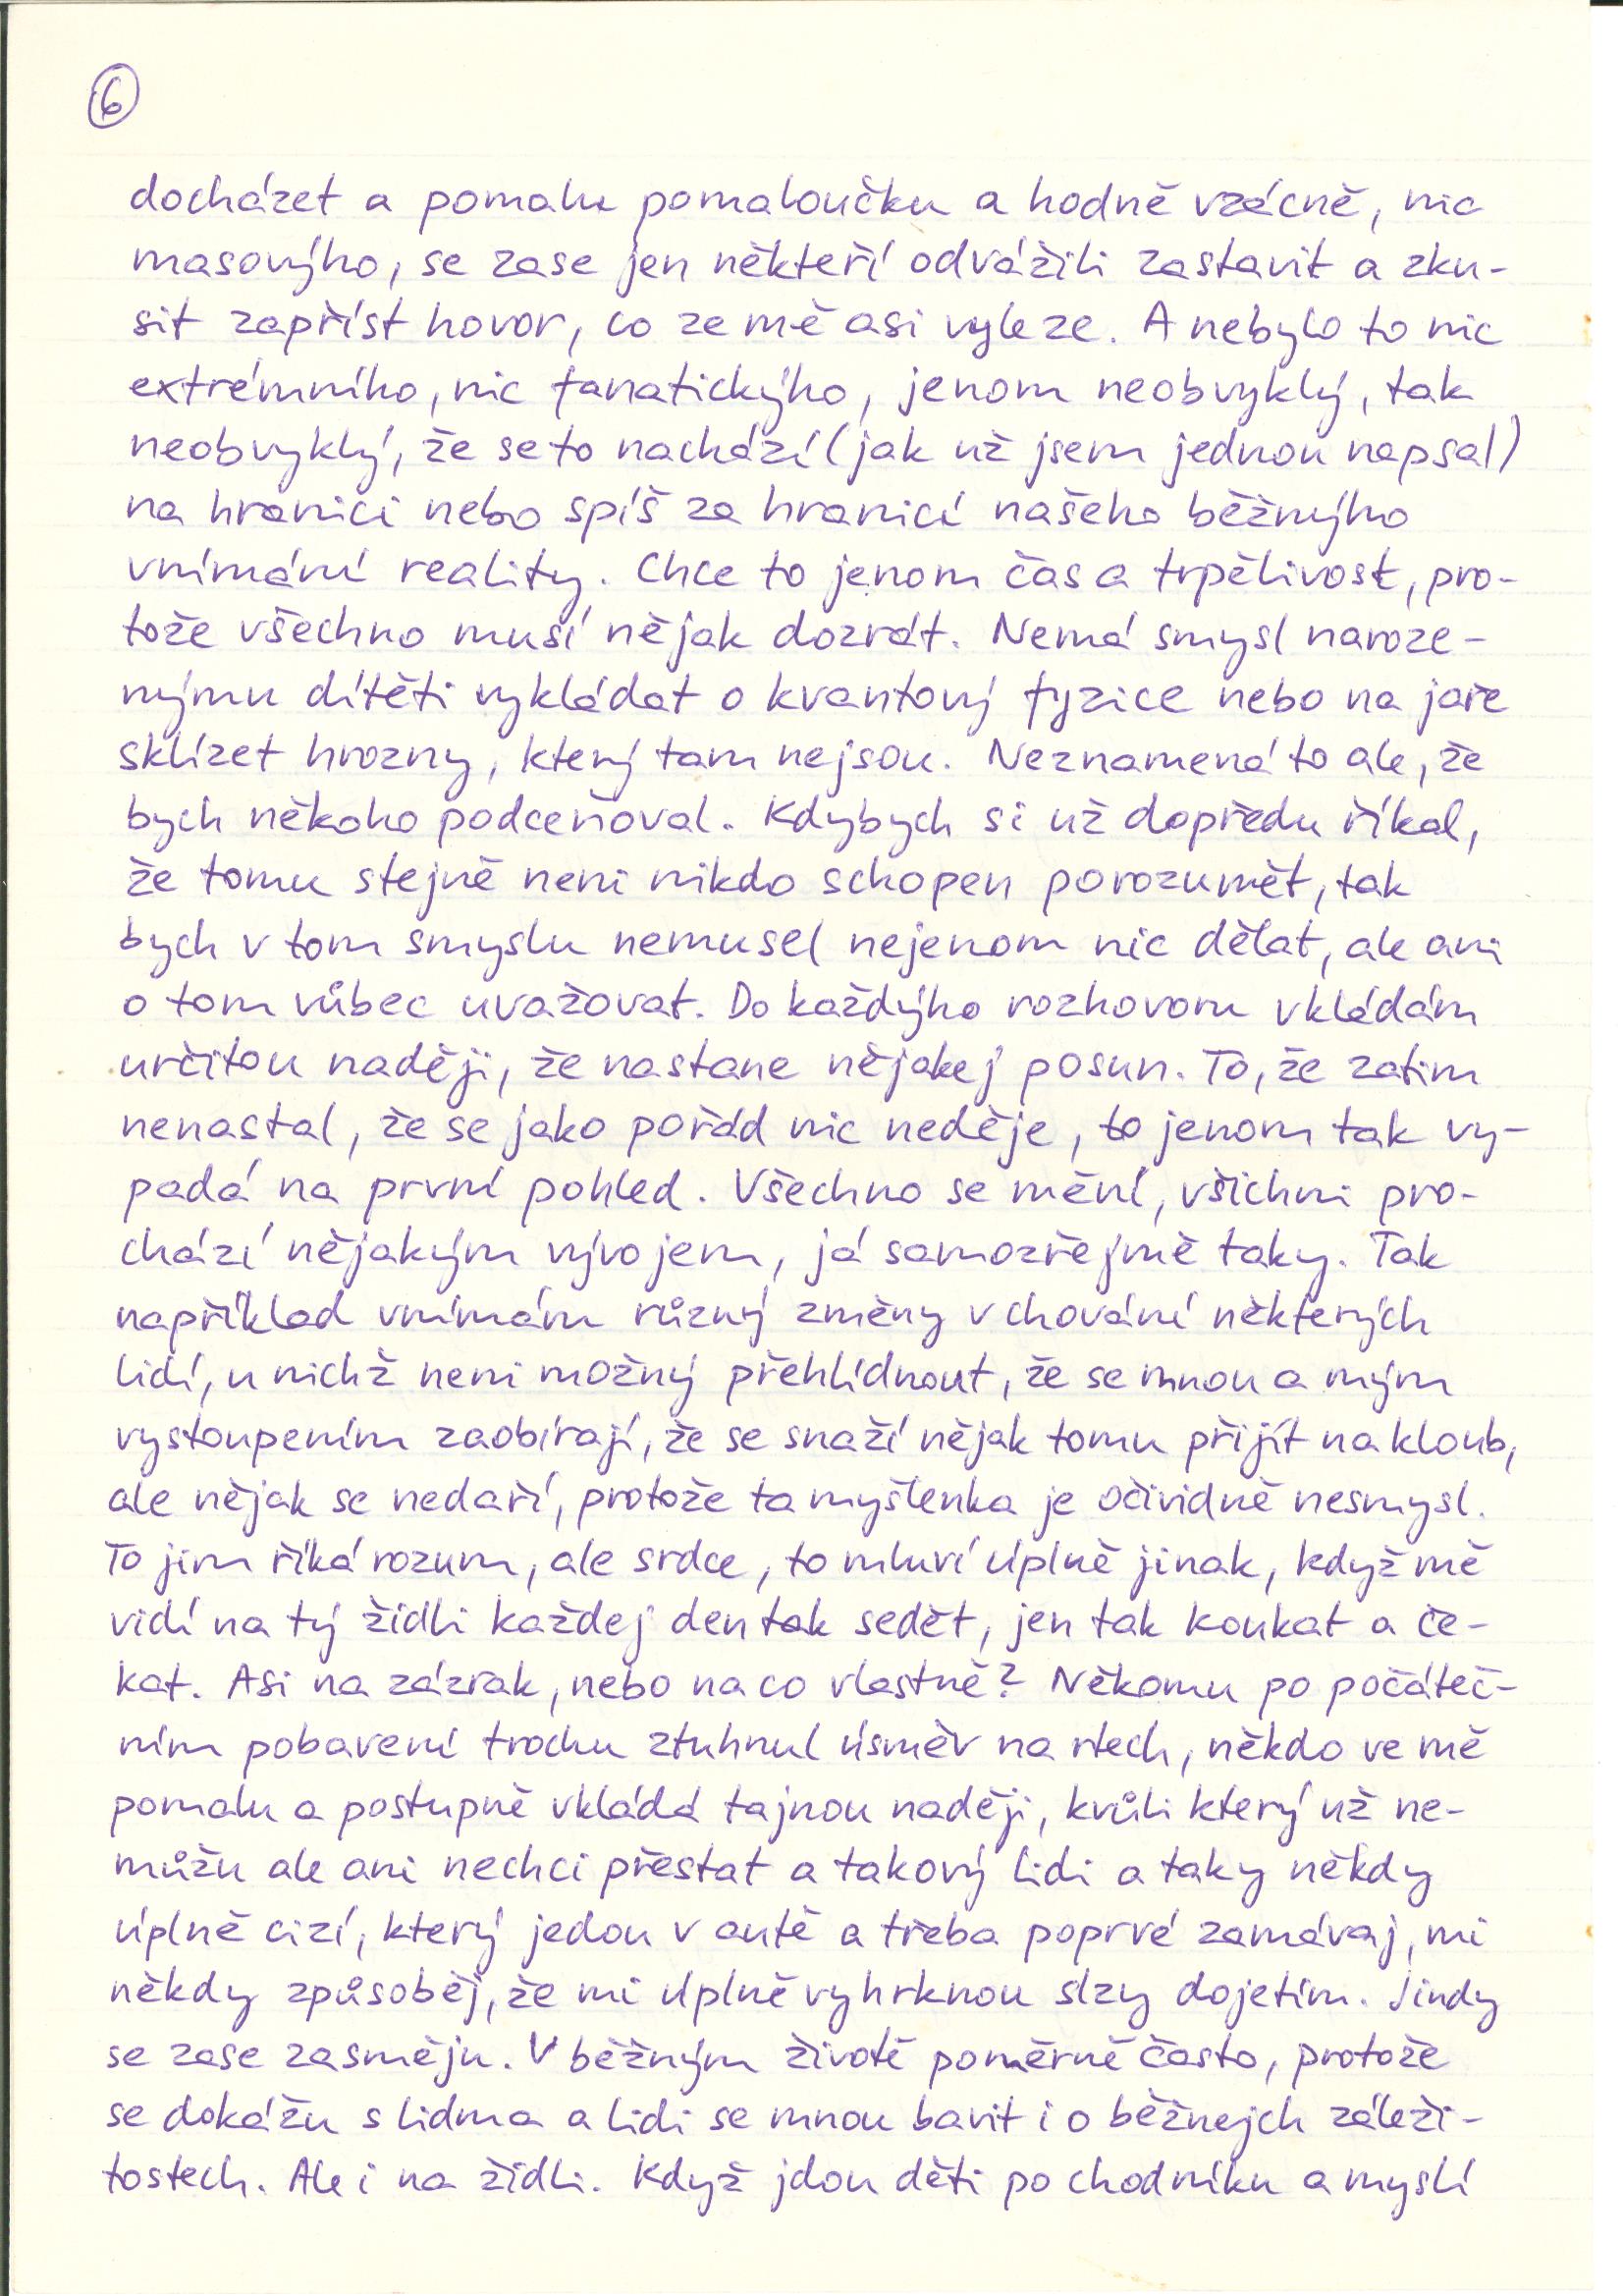 6
docházet a pomalu pomaloučku a hodně vzácně, nic
masovýho, se zase jen někteří odvážili zastavit a zku-
sit zapříst hovor, co ze mě asi vyleze. A nebylo to nic
extrémního, nic fanatickýho, jenom neobvyklý, tak
neobvyklý, že se to nachází (jak už jsem jednou napsal)
na hranici nebo spíš za hranicí našeho běžnýho
vnímání reality. Chce to jenom čas a trpělivost, pro-
tože všechno musí nějak dozrát. Nemá smysl naroze-
nýmu dítěti vykládat o kvantový fyzice nebo na jaře
sklízet hrozny, který tam nejsou. Neznamená to ale, že
bych někoho podceňoval. Kdybych si už dopředu říkal,
že tomu stejně neni nikdo schopen porozumět, tak
bych v tom smyslu nemusel nejenom nic dělat, ale ani
o tom vůbec uvažovat. Do každýho rozhovoru vkládám
určitou naději, že nastane nějakej posun. To, že zatim
nenastal, že se jako pořád nic neděje, to jenom tak vy-
padá na první pohled. Všechno se mění, všichni pro-
chází nějakým vývojem, já samozřejmě taky. Tak
například vnímám různý změny v chování některých
lidí, u nichž neni možný přehlídnout, že se mnou a mým
vystoupením zaobírají, že se snaží nějak tomu přijít na kloub,
ale nějak se nedaří, protože ta myšlenka je očividně nesmysl.
To jim říká rozum, ale srdce, to mluví úplně jinak, když mě
vidí na tý židli každej den tak sedět, jen tak koukat a če-
kat. Asi na zázrak, nebo na co vlastně? Někomu po počáteč-
ním pobavení trochu ztuhnul úsměv na rtech, někdo ve mě
pomalu a postupně vkládá tajnou naději, kvůli který už ne-
můžu ale ani nechci přestat a takový lidi a taky někdy
úplně cizí, který jedou v autě a třeba poprvé zamávaj, mi
někdy způsoběj, že mi úplně vyhrknou slzy dojetím. Jindy
se zase zasměju. V běžným životě poměrně často, protože
se dokážu s lidma a lidi se mnou bavit i o běžnejch záleži-
tostech. Ale i na židli. Když jdou děti po chodníku a myslí